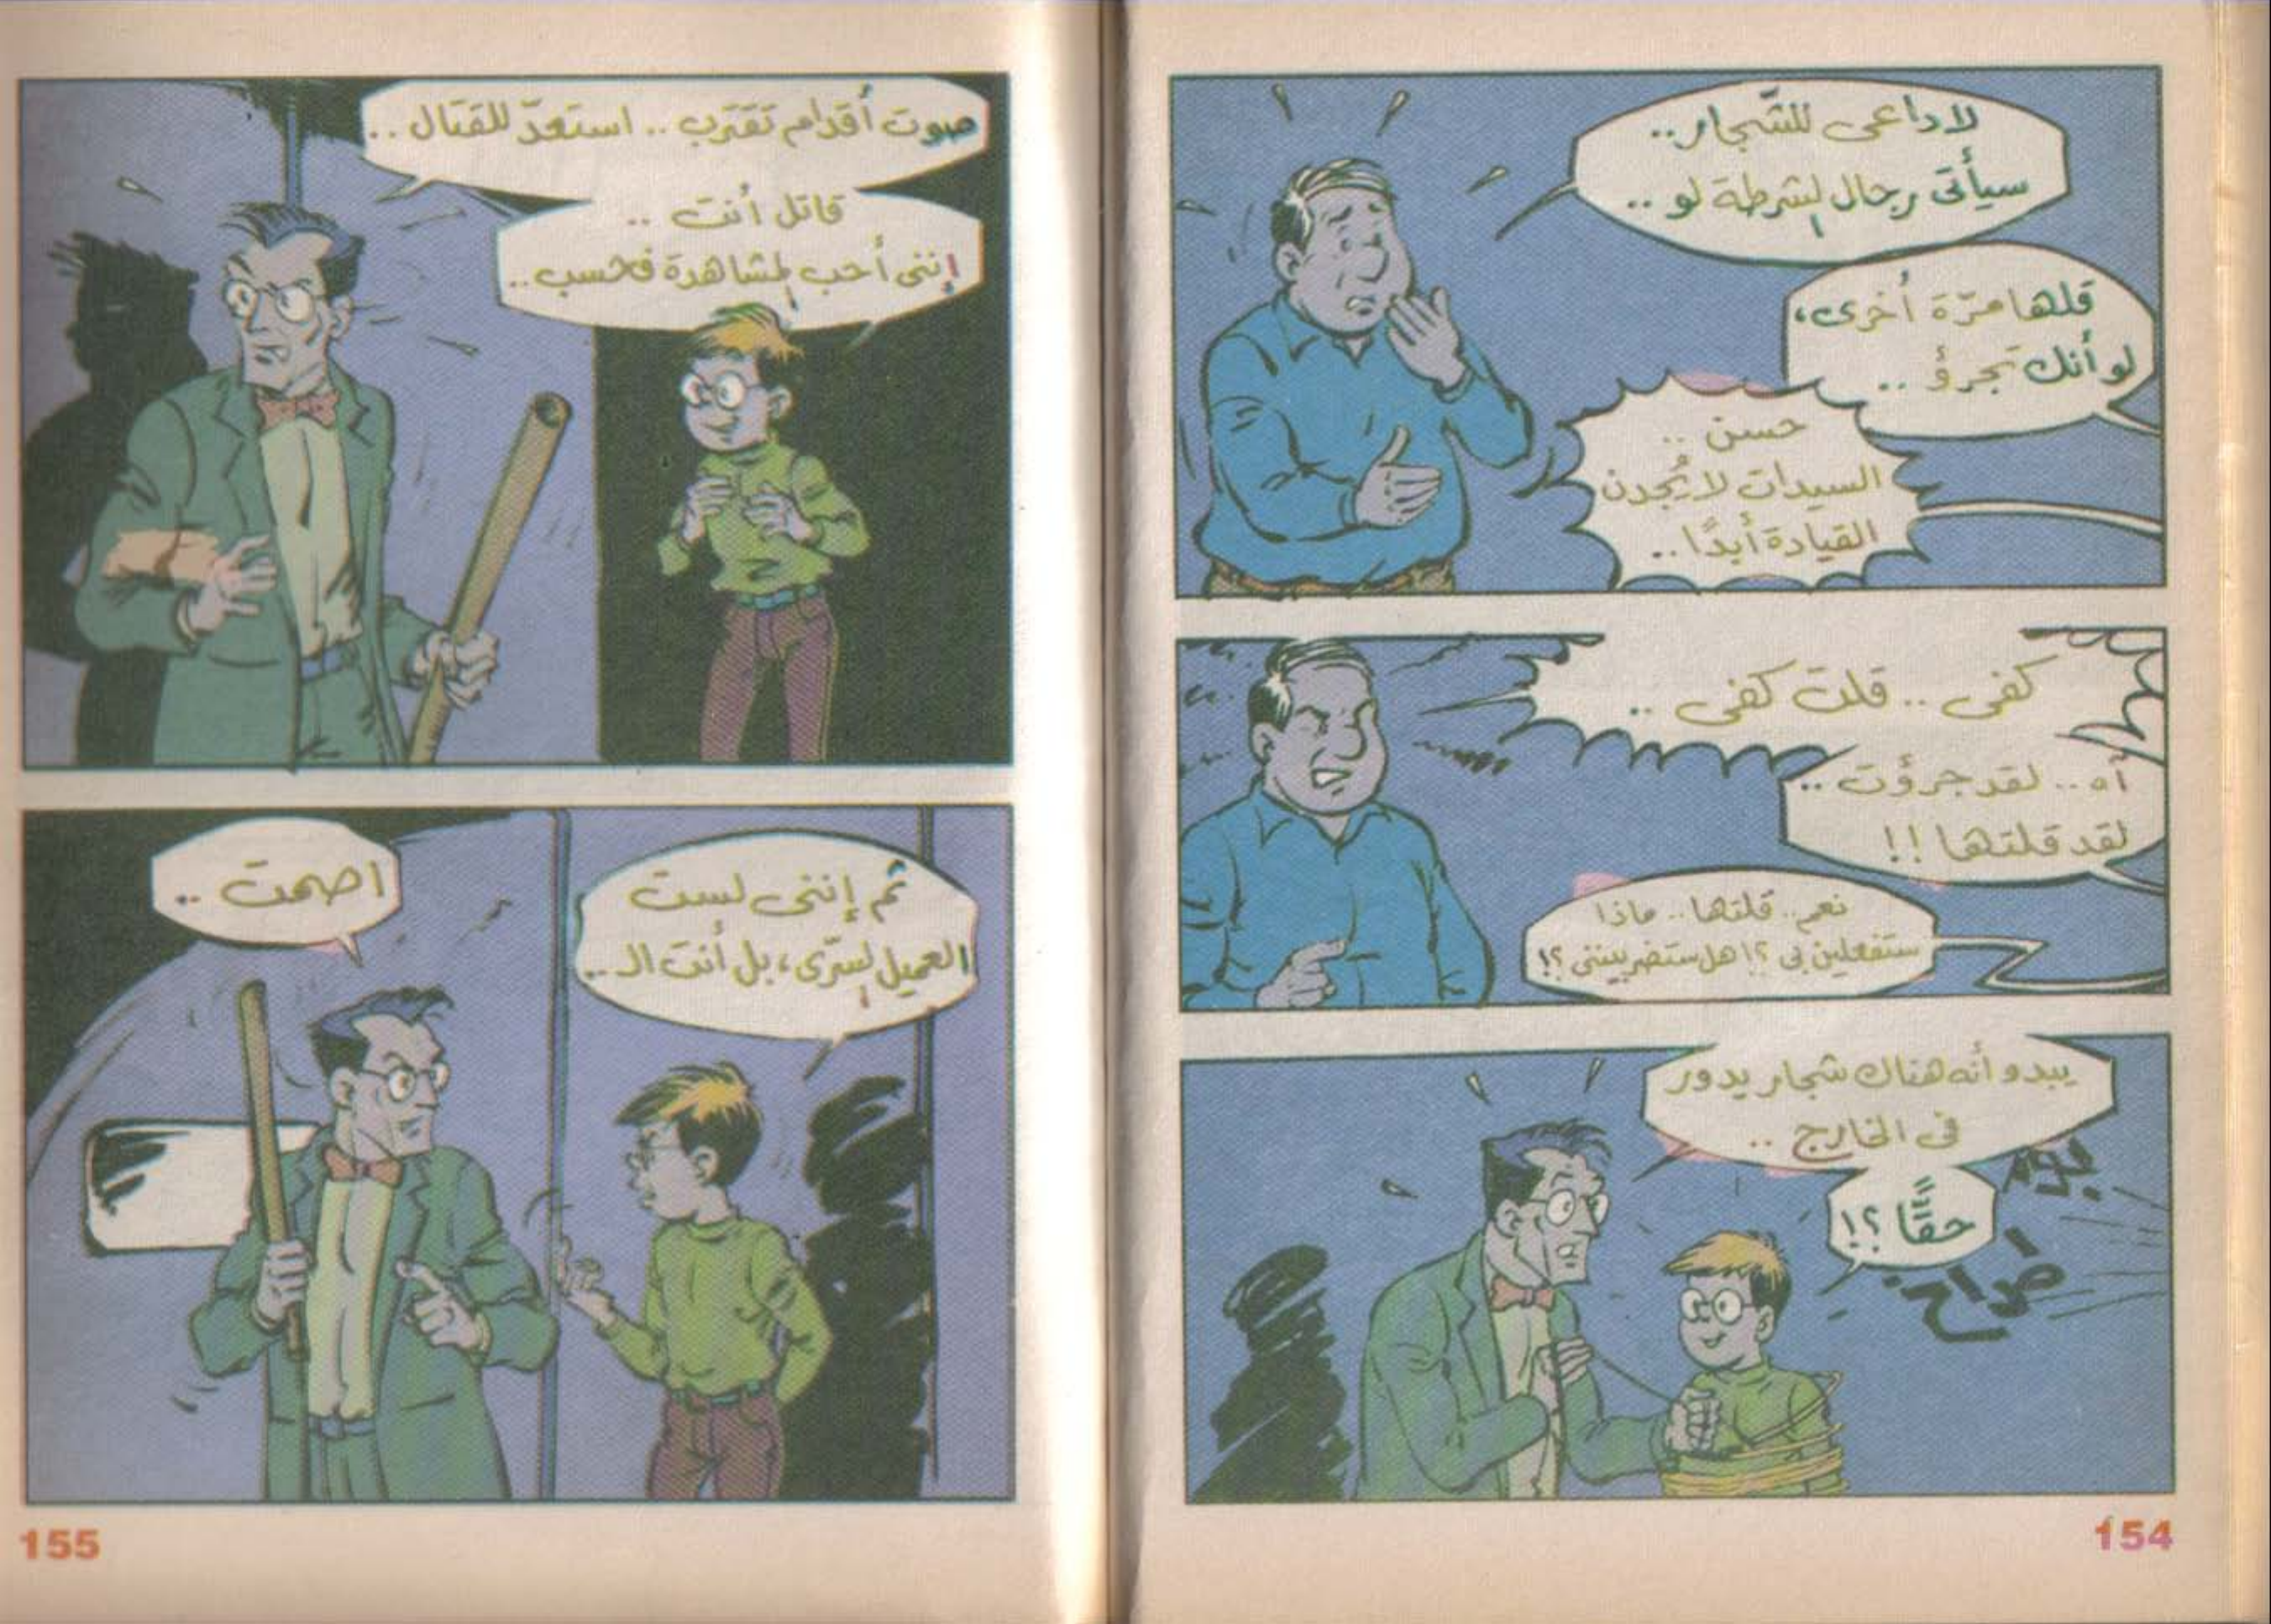 لا داعى للشّجار..
سيأتى رجال الشرطة لو ..
قلها مرّة أُخرى،
لو أنك تجرؤ ..
حسن ..
السيدات لا يُجدن
القيادة أبدًا ..
كفى .. قلت كفى ..
آه .. لقد جرؤت ..
لقد قلتها !!
نعم .. قلتها .. ماذا
ستفعلين بى ؟! هل ستضربيننى ؟!
يبدو أنه هناك شجار يدور
فى الخارج ..
بوم
حقًّا ؟!
صراخ
154
صوت أقدام تقترب .. استعدّ للقتال ..
قاتل أنت ..
إننى أحب المشاهدة فحسب ..
ثم إننى لست
العميل السرّى، بل أنت الـ ..
اصمت ..
155